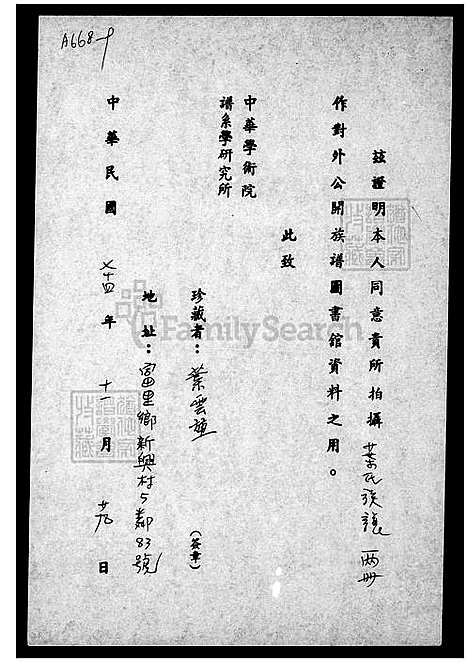 A668-9
茲證明本人同意貴所拍攝葉氏族譜 一兩册
作對外公開族譜圖書館資料之用。
此致
中華學術院
譜系學研究所
珍藏者：葉雲 (簽章)
地址：富里鄉新興村5鄰83號
中華民國 七十四年 十一月 廿九日
FamilySearch